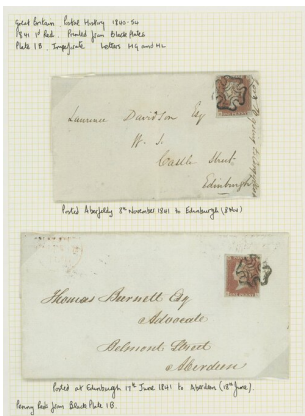 Great Britain Postal History 1840-54
1841 1d Red. Printed from Black Plates
Plate 1B. Imperforate Letters HG and HL
Laurence Davidson Esq
W. S.
Castle Street
Edinburgh
Posted Aberfeldy 8th November 1841 to Edinburgh (9th)
Thomas Burnett Esq
Advocate
Belmont Street
Aberdeen
Posted at Edinburgh 17th June 1841 to Aberdeen (18th June).
Penny Reds from Black Plate 1B.